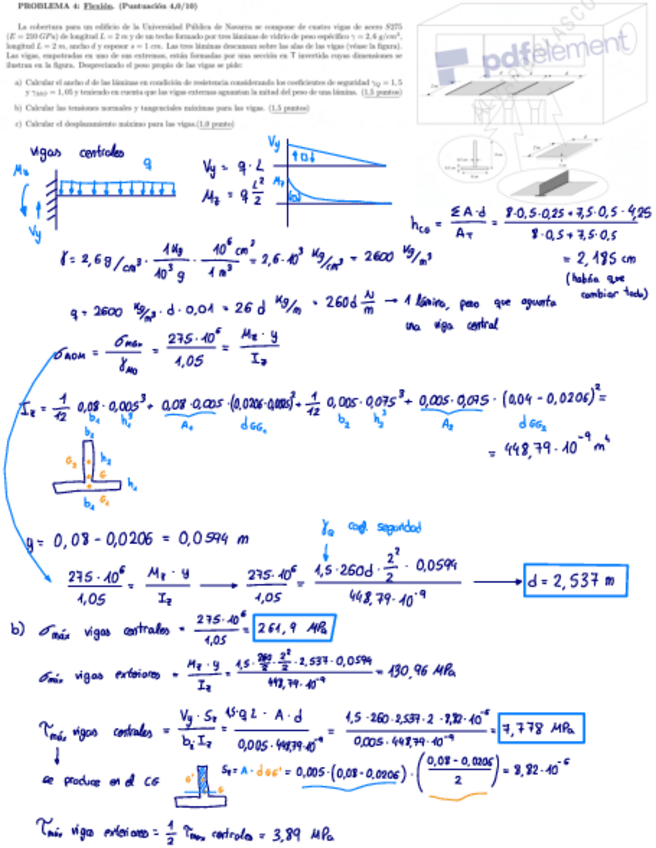 PROBLEMA 4: Flexión. (Puntuación 4,0/10)
La cobertura para un edificio de la Universidad Pública de Navarra se compone de cuatro vigas de acero S275
(E = 210 GPa) de longitud L = 2 m y de un techo formado por tres láminas de vidrio de peso específico γ = 2,6 g/cm³,
longitud L = 2 m, ancho d y espesor s = 1 cm. Las tres láminas descansan sobre las alas de las vigas (véase la figura).
Las vigas, empotradas en uno de sus extremos, están formadas por una sección en T invertida cuyas dimensiones se
ilustran en la figura. Despreciando el peso propio de las vigas se pide:
a) Calcular el ancho d de las láminas en condición de resistencia considerando los coeficientes de seguridad γQ = 1,5
y γM0 = 1,05 y teniendo en cuenta que las vigas externas aguantan la mitad del peso de una lámina. (1,5 puntos)
b) Calcular las tensiones normales y tangenciales máximas para las vigas. (1,5 puntos)
c) Calcular el desplazamiento máximo para las vigas.(1,0 punto)
pdfelement
vigas centrales
q
Mz
Vy
Vy = q · L
Mz = q L²/2
Vy
Mz
hCG = ΣA·d / AT = 8·0,5·0,25 + 7,5·0,5·4,25 / 8·0,5 + 7,5·0,5
= 2,185 cm
(habría que cambiar todo)
γ = 2,6 g/cm³ · 1 kg/10³ g · 10⁶ cm³/1 m³ = 2,6·10³ kg/cm³ = 2600 kg/m³
q = 2600 kg/m³ · d · 0,01 = 26 d kg/m = 260d N/m → 1 lámina, peso que aguanta
una viga central
σADM = σmáx/γM0 = 275·10⁶/1,05 = Mz · y/Iz
Iz = 1/12 0,08·0,005³ + 0,08·0,005·(0,0206-0,0025)² + 1/12 0,005·0,075³ + 0,005·0,075·(0,04 - 0,0206)² =
b₁ h₁³ A₁ dGG₁ b₂ h₂³ A₂ dGG₂
= 448,79·10⁻⁹ m⁴
b₂
G₂ h₂
G
h₁
b₁ G₁
y = 0,08 - 0,0206 = 0,0594 m
γQ coef. seguridad
275·10⁶/1,05 = Mz · y/Iz → 275·10⁶/1,05 = 1,5·260d · 2²/2 · 0,0594 / 448,79·10⁻⁹ → d = 2,537 m
b) σmáx vigas centrales = 275·10⁶/1,05 = 261,9 MPa
σmáx vigas exteriores = Mz · y/Iz = 1,5 · 260/2 · 2²/2 · 2,537·0,0594 / 448,79·10⁻⁹ = 130,96 MPa
τmáx vigas centrales = Vy · Sz / bi Iz = 1,5·q L · A · d / 0,005·448,79·10⁻⁹ = 1,5·260·2,537·2·8,82·10⁻⁶ / 0,005·448,79·10⁻⁹ = 7,778 MPa
se produce en el CG
Sz = A · dGG' = 0,005·(0,08 - 0,0206) · (0,08 - 0,0206 / 2) = 8,82·10⁻⁶
G'
G
τmáx vigas exteriores = 1/2 τmax centrales = 3,89 MPa